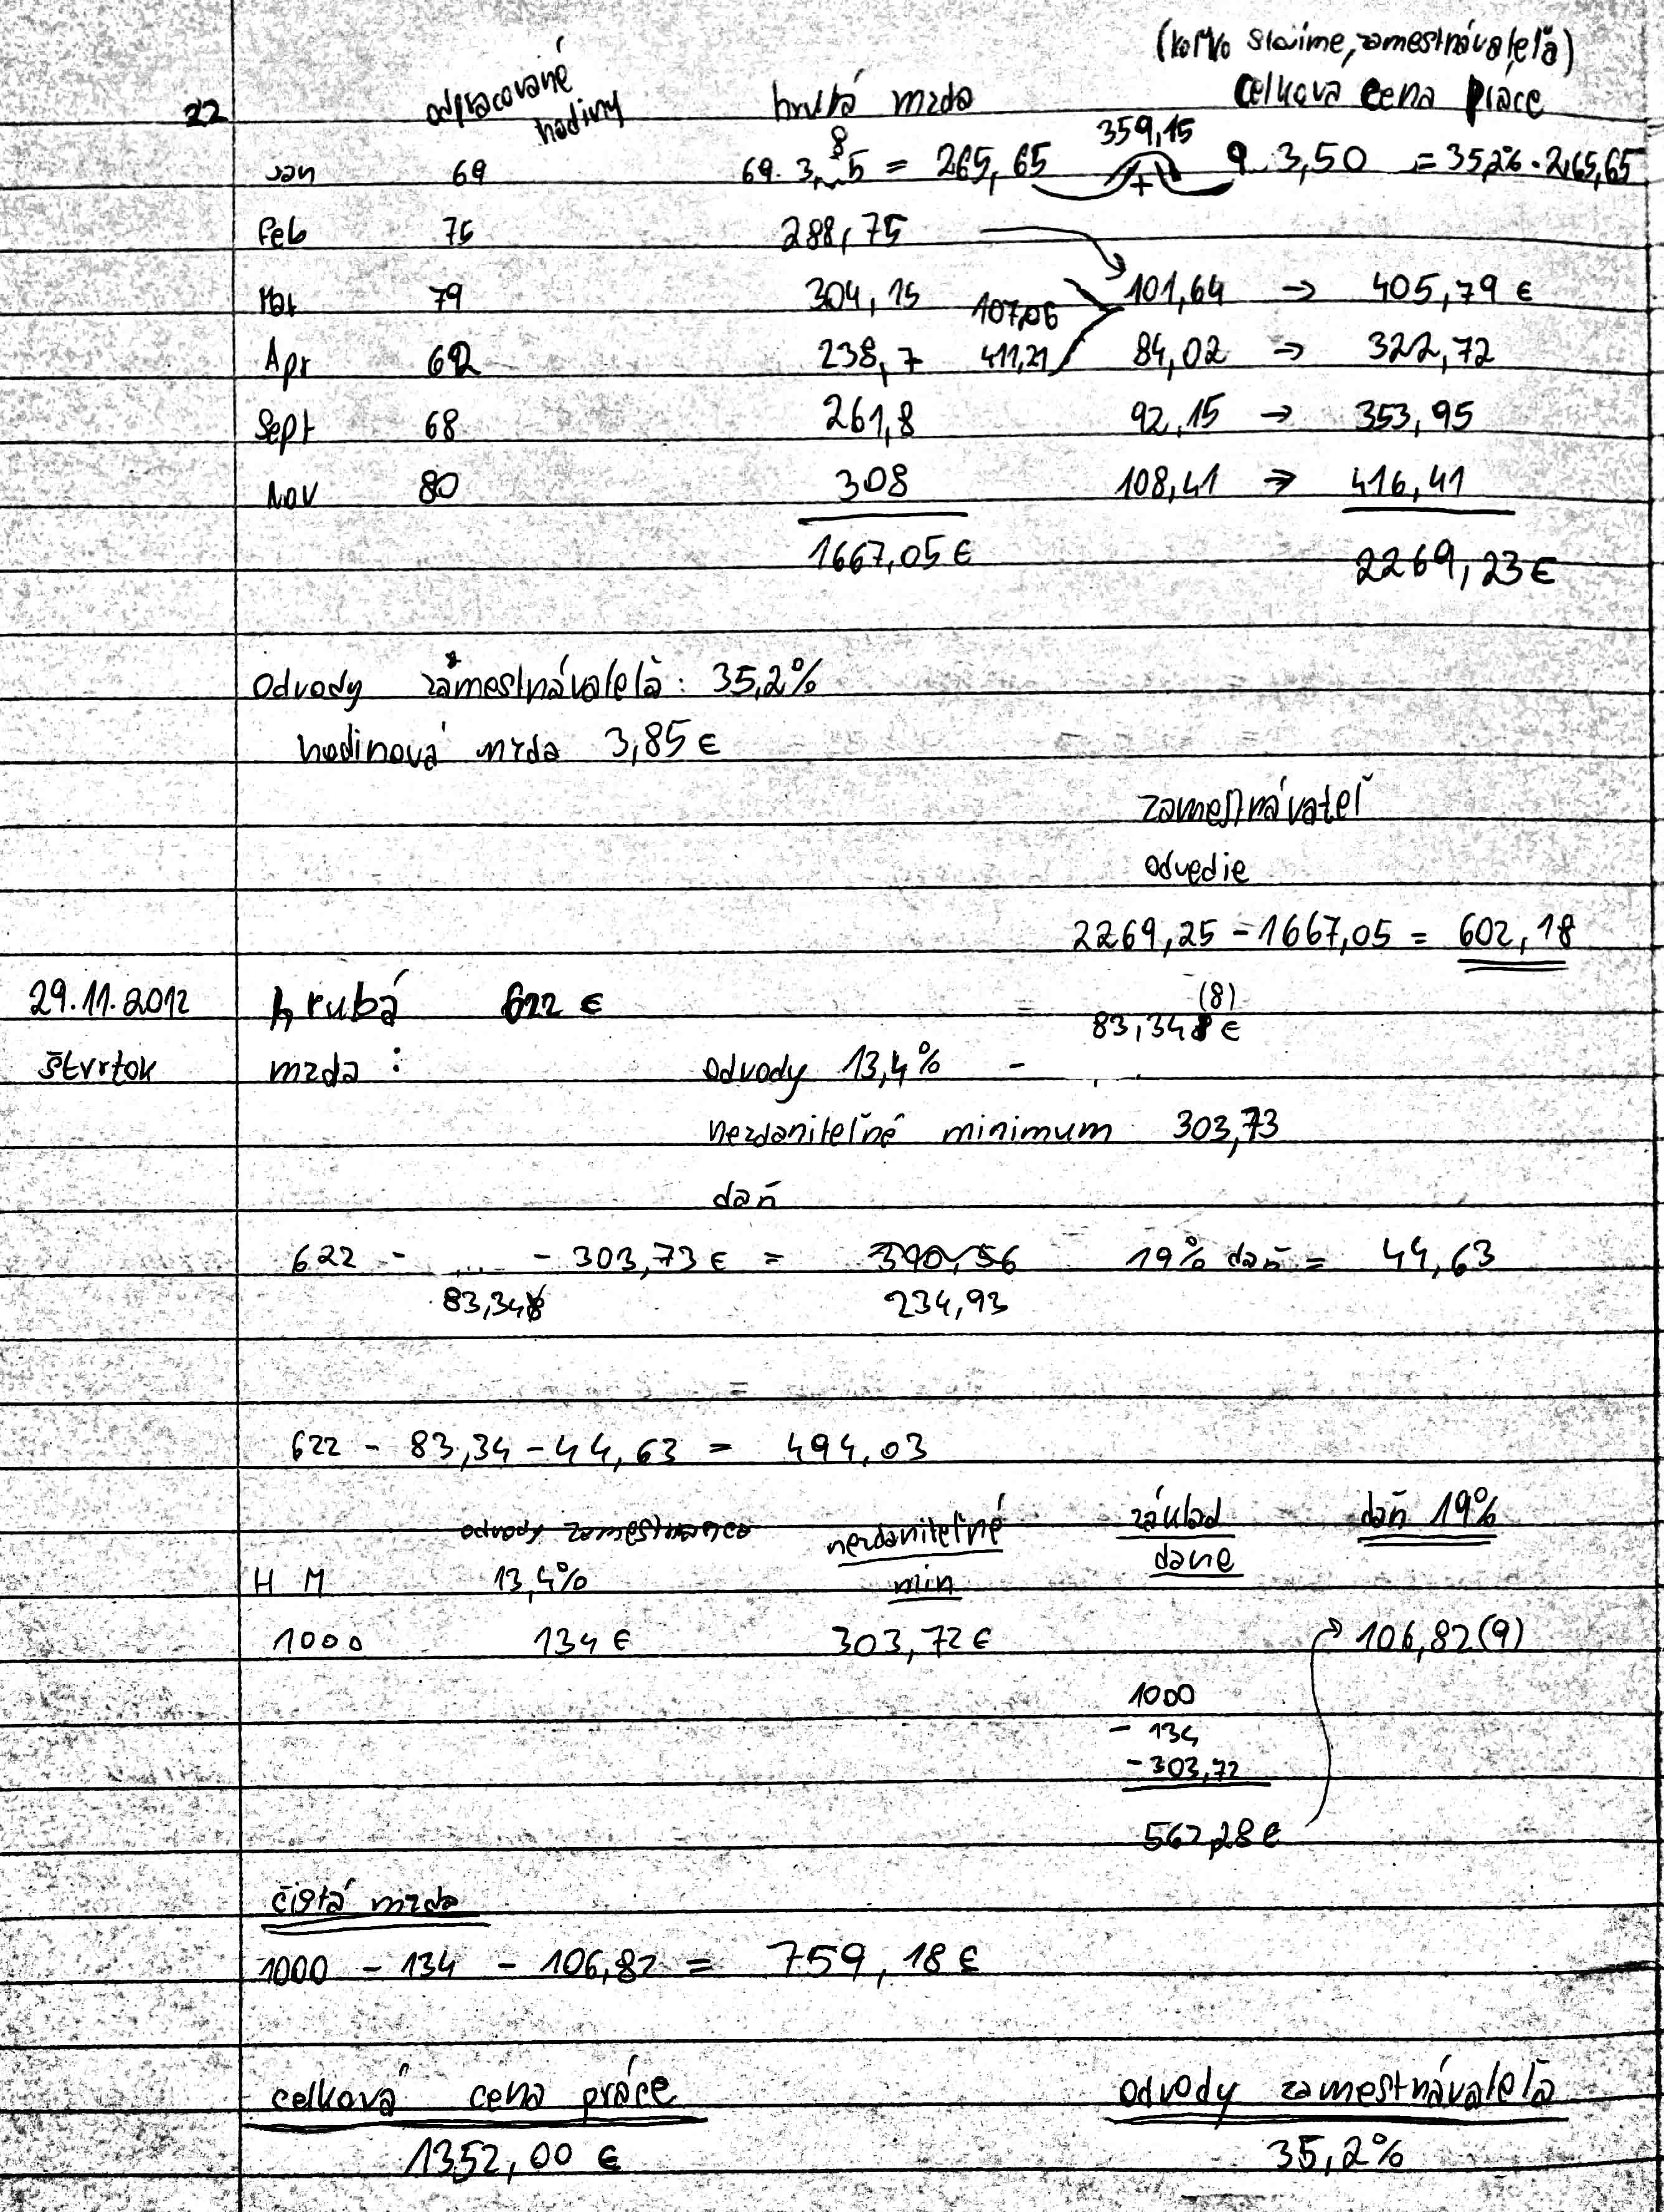 (koľko stojíme, zamestnávateľa)
22 odpracované hodiny hrubá mzda celková cena práce
Jan 69 69 . 3,85 = 265,65 359,15 + 9 3,50 = 35,2% . 265,65
Feb 75 288,75
Mar 79 304,15 107,06 101,64 → 405,79 €
Apr 62 238,7 411,21 84,02 → 322,72
Sept 68 261,8 92,15 → 353,95
Nov 80 308 108,41 → 416,41
1667,05 € 2269,23 €
odvody zamestnávateľa : 35,2%
hodinová mzda 3,85 €
zamestnávateľ
odvedie
2269,25 - 1667,05 = 602,18
29.11.2012 hrubá 622 € (8)
83,348 €
štvrtok mzda : odvody 13,4% -
nezdaniteľné minimum 303,73
daň
622 - ... - 303,73 € = 340,56 19% daň = 44,63
83,348 234,93
622 - 83,34 - 44,63 = 494,03
odvody zamestnanca nezdaniteľné základ daň 19%
H M 13,4% min dane
1000 134 € 303,72 € 106,82(9)
1000
- 134
- 303,72
562,28 €
čistá mzda
1000 - 134 - 106,82 = 759,18 €
celková cena práce odvody zamestnávateľa
1352,00 € 35,2%